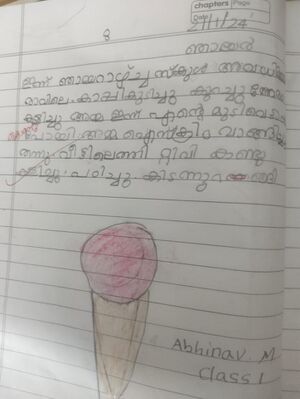 chapters | Page
Date 21/1/24
8
ഞായർ
ഇന്ന് ഞായറാഴ്ച്ച സ്കൂൾ അവധി
രാവിലെ കാപ്പികുടിച്ചു കുറച്ചു നേരം
കളിച്ചു അമ്മ ഇന്ന് എന്റെ മുടി വെട്ടാൻ
പോയി അമ്മ ഐസ്ക്രീം വാങ്ങി
തന്നു വീട്ടിലെത്തി റ്റിവി കണ്ടു
പഠിച്ചു കിടന്നുറങ്ങി
Abhinav M
Class 1